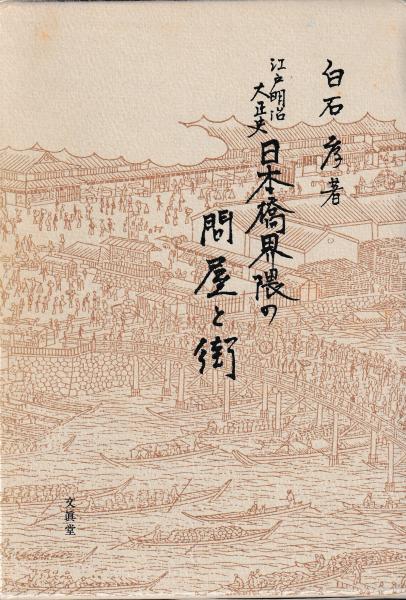 白石孝著
江戸明治
大正史
日本橋界隈の
問屋と街
文眞堂